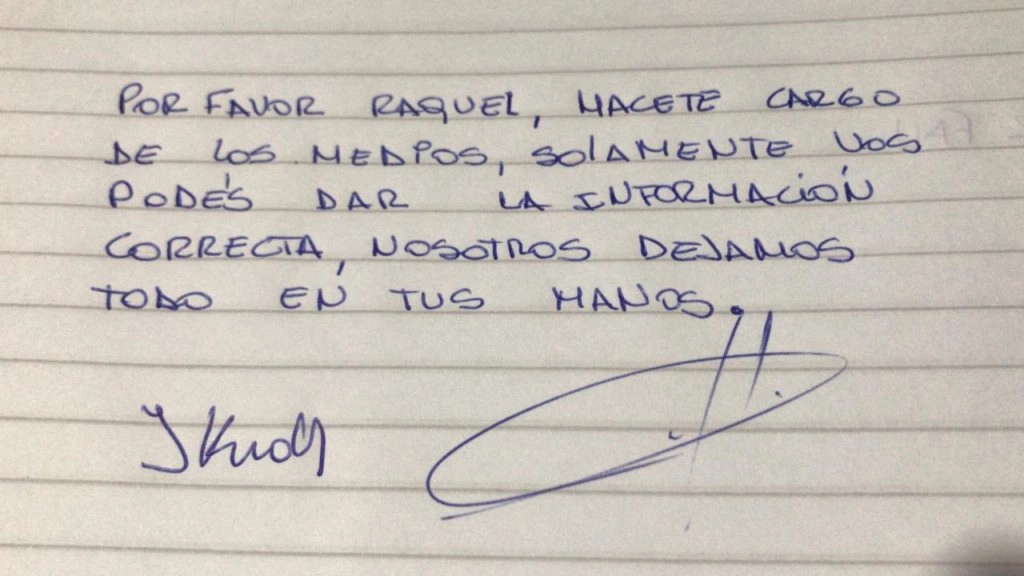 POR FAVOR RAQUEL, HACETE CARGO
DE LOS MEDIOS, SOLAMENTE VOS
PODÉS DAR LA INFORMACIÓN
CORRECTA, NOSOTROS DEJAMOS
TODO EN TUS MANOS.